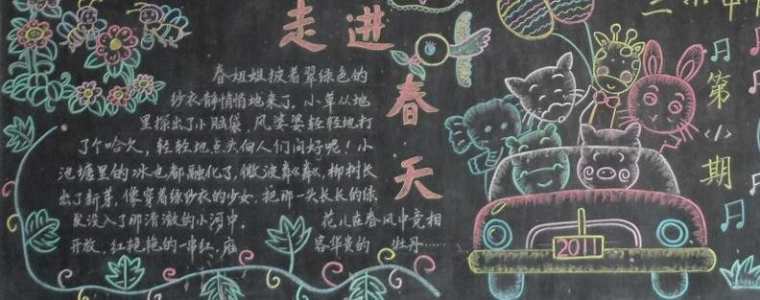 走进春天
春姐姐披着翠绿色的
纱衣静悄悄地来了，小草从地
里探出了小脑袋，风婆婆轻轻地打
了个哈欠，轻轻地点头向人们问好呢！小
池塘里的冰也都融化了，微波粼粼，柳树长
出了新芽，像穿着绿纱衣的少女，把那一头长长的绿
发没入了那清澈的小河中。 花儿在春风中竞相
开放，红艳艳的一串红，雍
容华贵的 牡丹……
第 期
2011